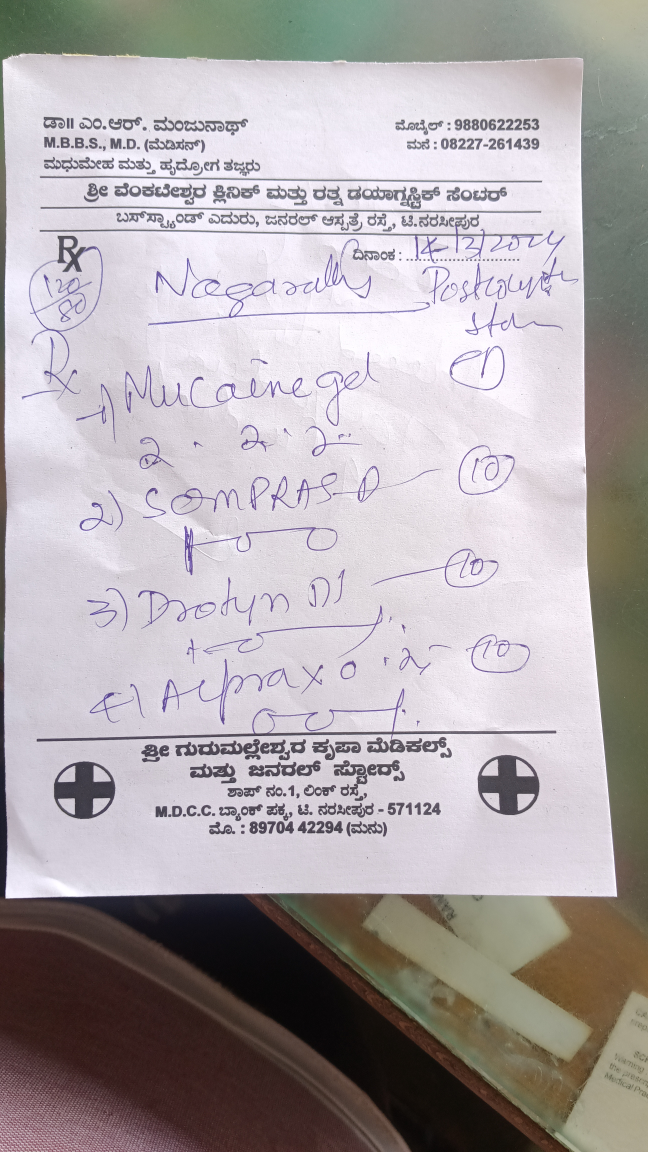 ಡಾ॥ ಎಂ.ಆರ್. ಮಂಜುನಾಥ್
M.B.B.S., M.D. (ಮೆಡಿಸನ್)
ಮಧುಮೇಹ ಮತ್ತು ಹೃದ್ರೋಗ ತಜ್ಞರು
ಮೊಬೈಲ್ : 9880622253
ಮನೆ : 08227-261439
ಶ್ರೀ ವೆಂಕಟೇಶ್ವರ ಕ್ಲಿನಿಕ್ ಮತ್ತು ರತ್ನ ಡಯಾಗ್ನಸ್ಟಿಕ್ ಸೆಂಟರ್
ಬಸ್‌ಸ್ಟ್ಯಾಂಡ್ ಎದುರು, ಜನರಲ್ ಆಸ್ಪತ್ರೆ ರಸ್ತೆ, ಟಿ.ನರಸೀಪುರ
Rx
ದಿನಾಂಕ : 14/3/2024
120/80
Rx
1) Mucaine gel
2 . 2 . 2
2) SOMPRAS-D 10
3) Drotyn 10
4) Alprax 0.25 10
ಶ್ರೀ ಗುರುಮಲ್ಲೇಶ್ವರ ಕೃಪಾ ಮೆಡಿಕಲ್ಸ್
ಮತ್ತು ಜನರಲ್ ಸ್ಟೋರ್ಸ್
ಶಾಪ್ ನಂ.1, ಲಿಂಕ್ ರಸ್ತೆ,
M.D.C.C. ಬ್ಯಾಂಕ್ ಪಕ್ಕ, ಟಿ. ನರಸೀಪುರ - 571124
ಮೊ. : 89704 42294 (ಮನು)